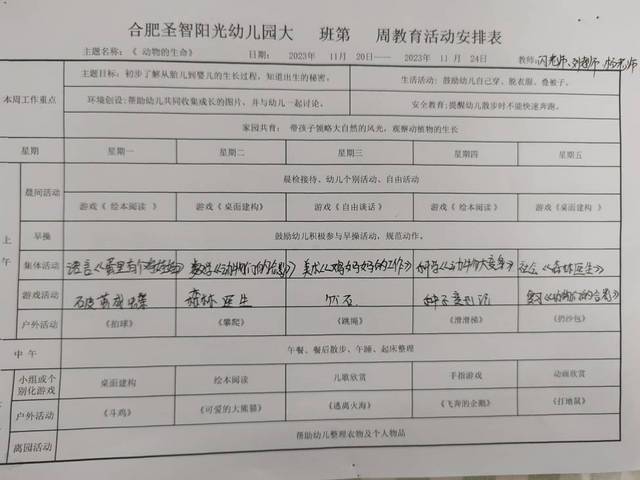 合肥圣智阳光幼儿园大 班第 周教育活动安排表
主题名称：《 动物的生命》 日期： 2023年 11月 20日—— 2023年 11月 24日 教师：
本周工作重点
主题目标：初步了解从胎儿到婴儿的生长过程，知道出生的秘密。 生活活动：鼓励幼儿自己穿、脱衣服、叠被子。
环境创设：帮助幼儿共同收集成长的图片，并与幼儿一起讨论。 安全教育：提醒幼儿散步时不能快速奔跑。
家园共育： 带孩子领略大自然的风光，观察动植物的生长
星期 星期一 星期二 星期三 星期四 星期五
上午
晨间活动 晨检接待、幼儿个别活动、自由活动
游戏《 绘本阅读 》 游戏《桌面建构》 游戏《自由谈话》 游戏《 绘本阅读 》 游戏《桌面建构 》
早操 鼓励幼儿积极参与早操活动，规范动作。
集体活动 语言 数学 美术 科学 社会《森林医生》
游戏活动 森林医生
户外活动 《拍球》 《攀爬》 《跳绳》 《滑滑梯》 《扔沙包》
中 午 午餐、餐后散步、午睡、起床整理
小组或个别化游戏 桌面建构 绘本阅读 儿歌欣赏 手指游戏 动画欣赏
户外活动 《斗鸡》 《可爱的大熊猫》 《逃离火海》 《飞奔的企鹅》 《打地鼠》
离园活动 帮助幼儿整理衣物及个人物品